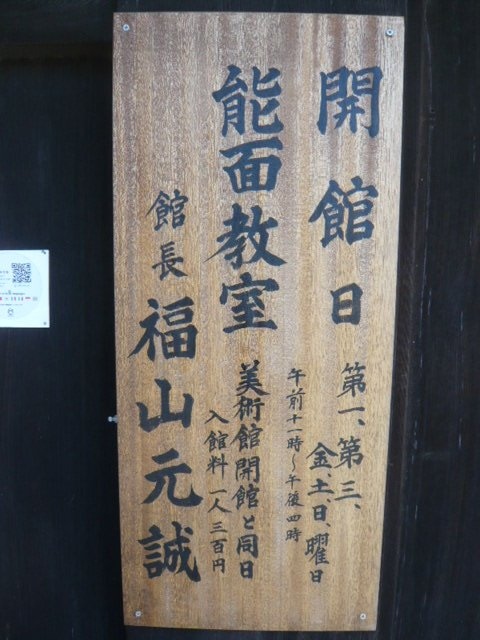 開館日 第一、第三、
金、土、日、曜日
午前十一時～午後四時
能面教室 美術館開館と同日
入館料 一人三百円
館長 福山元誠